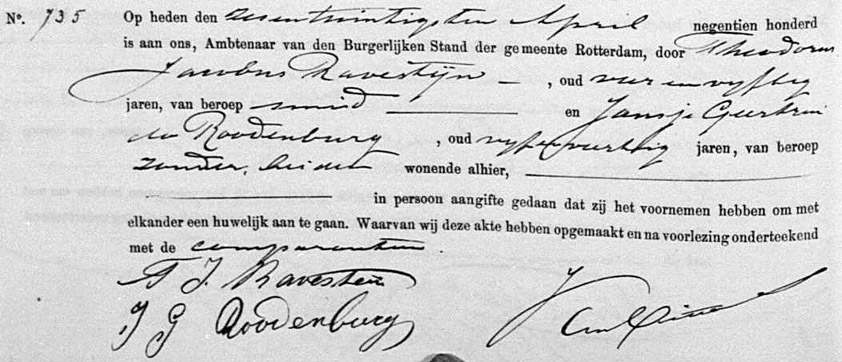 No. 735 Op heden den zesentwintigsten April negentien honderd
is aan ons, Ambtenaar van den Burgerlijken Stand der gemeente Rotterdam, door Theodorus
Jacobus Ravestijn —, oud vier en vijftig
jaren, van beroep smid — en Jansje Geertrui
da Roodenburg, oud vijfenveertig jaren, van beroep
zonder, beiden wonende alhier, —
— in persoon aangifte gedaan dat zij het voornemen hebben om met
elkander een huwelijk aan te gaan. Waarvan wij deze akte hebben opgemaakt en na voorlezing onderteekend
met de comparanten.
T J. Ravesten
J G Roodenburg